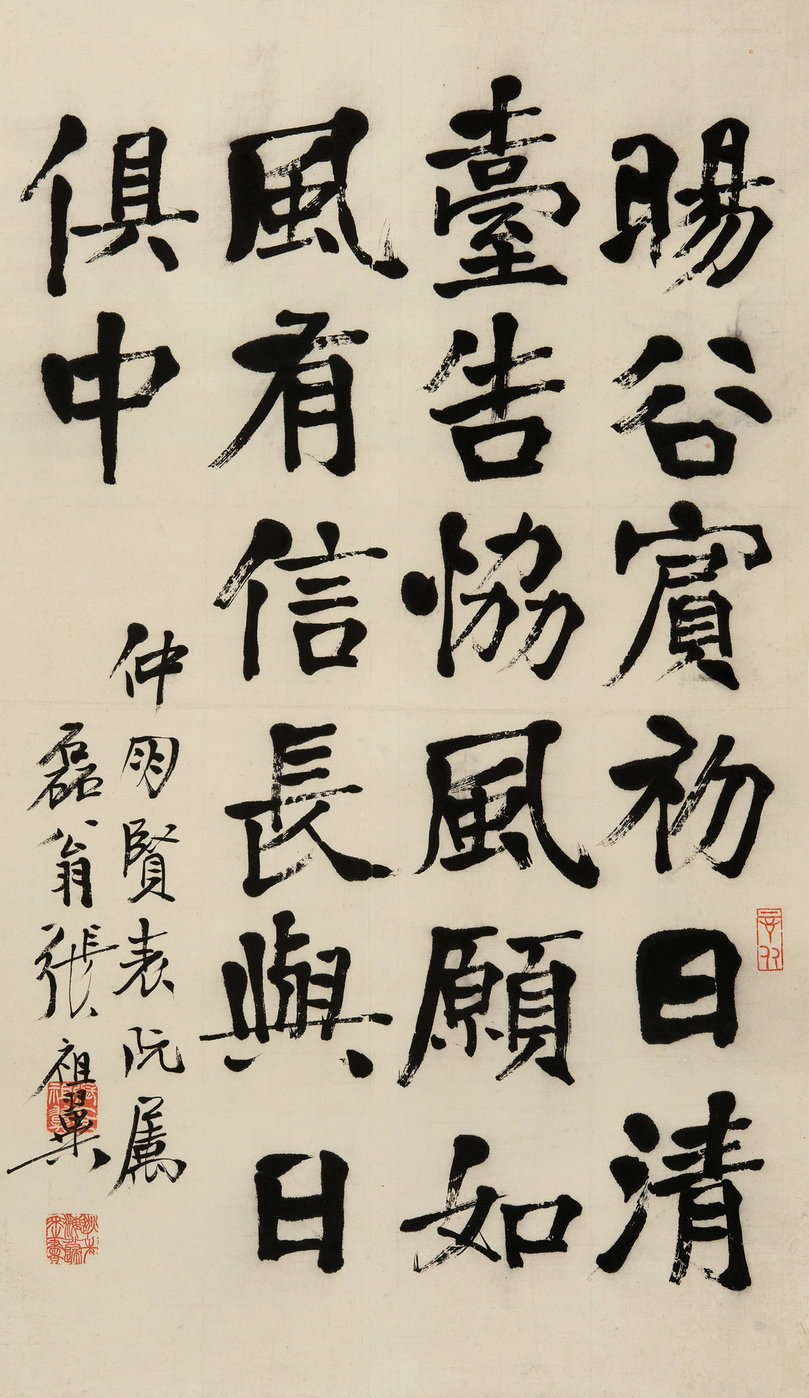 暘谷賓初日清
臺告協風願如
風有信長與日
俱中
仲明賢表阮属
磊翁張祖翼